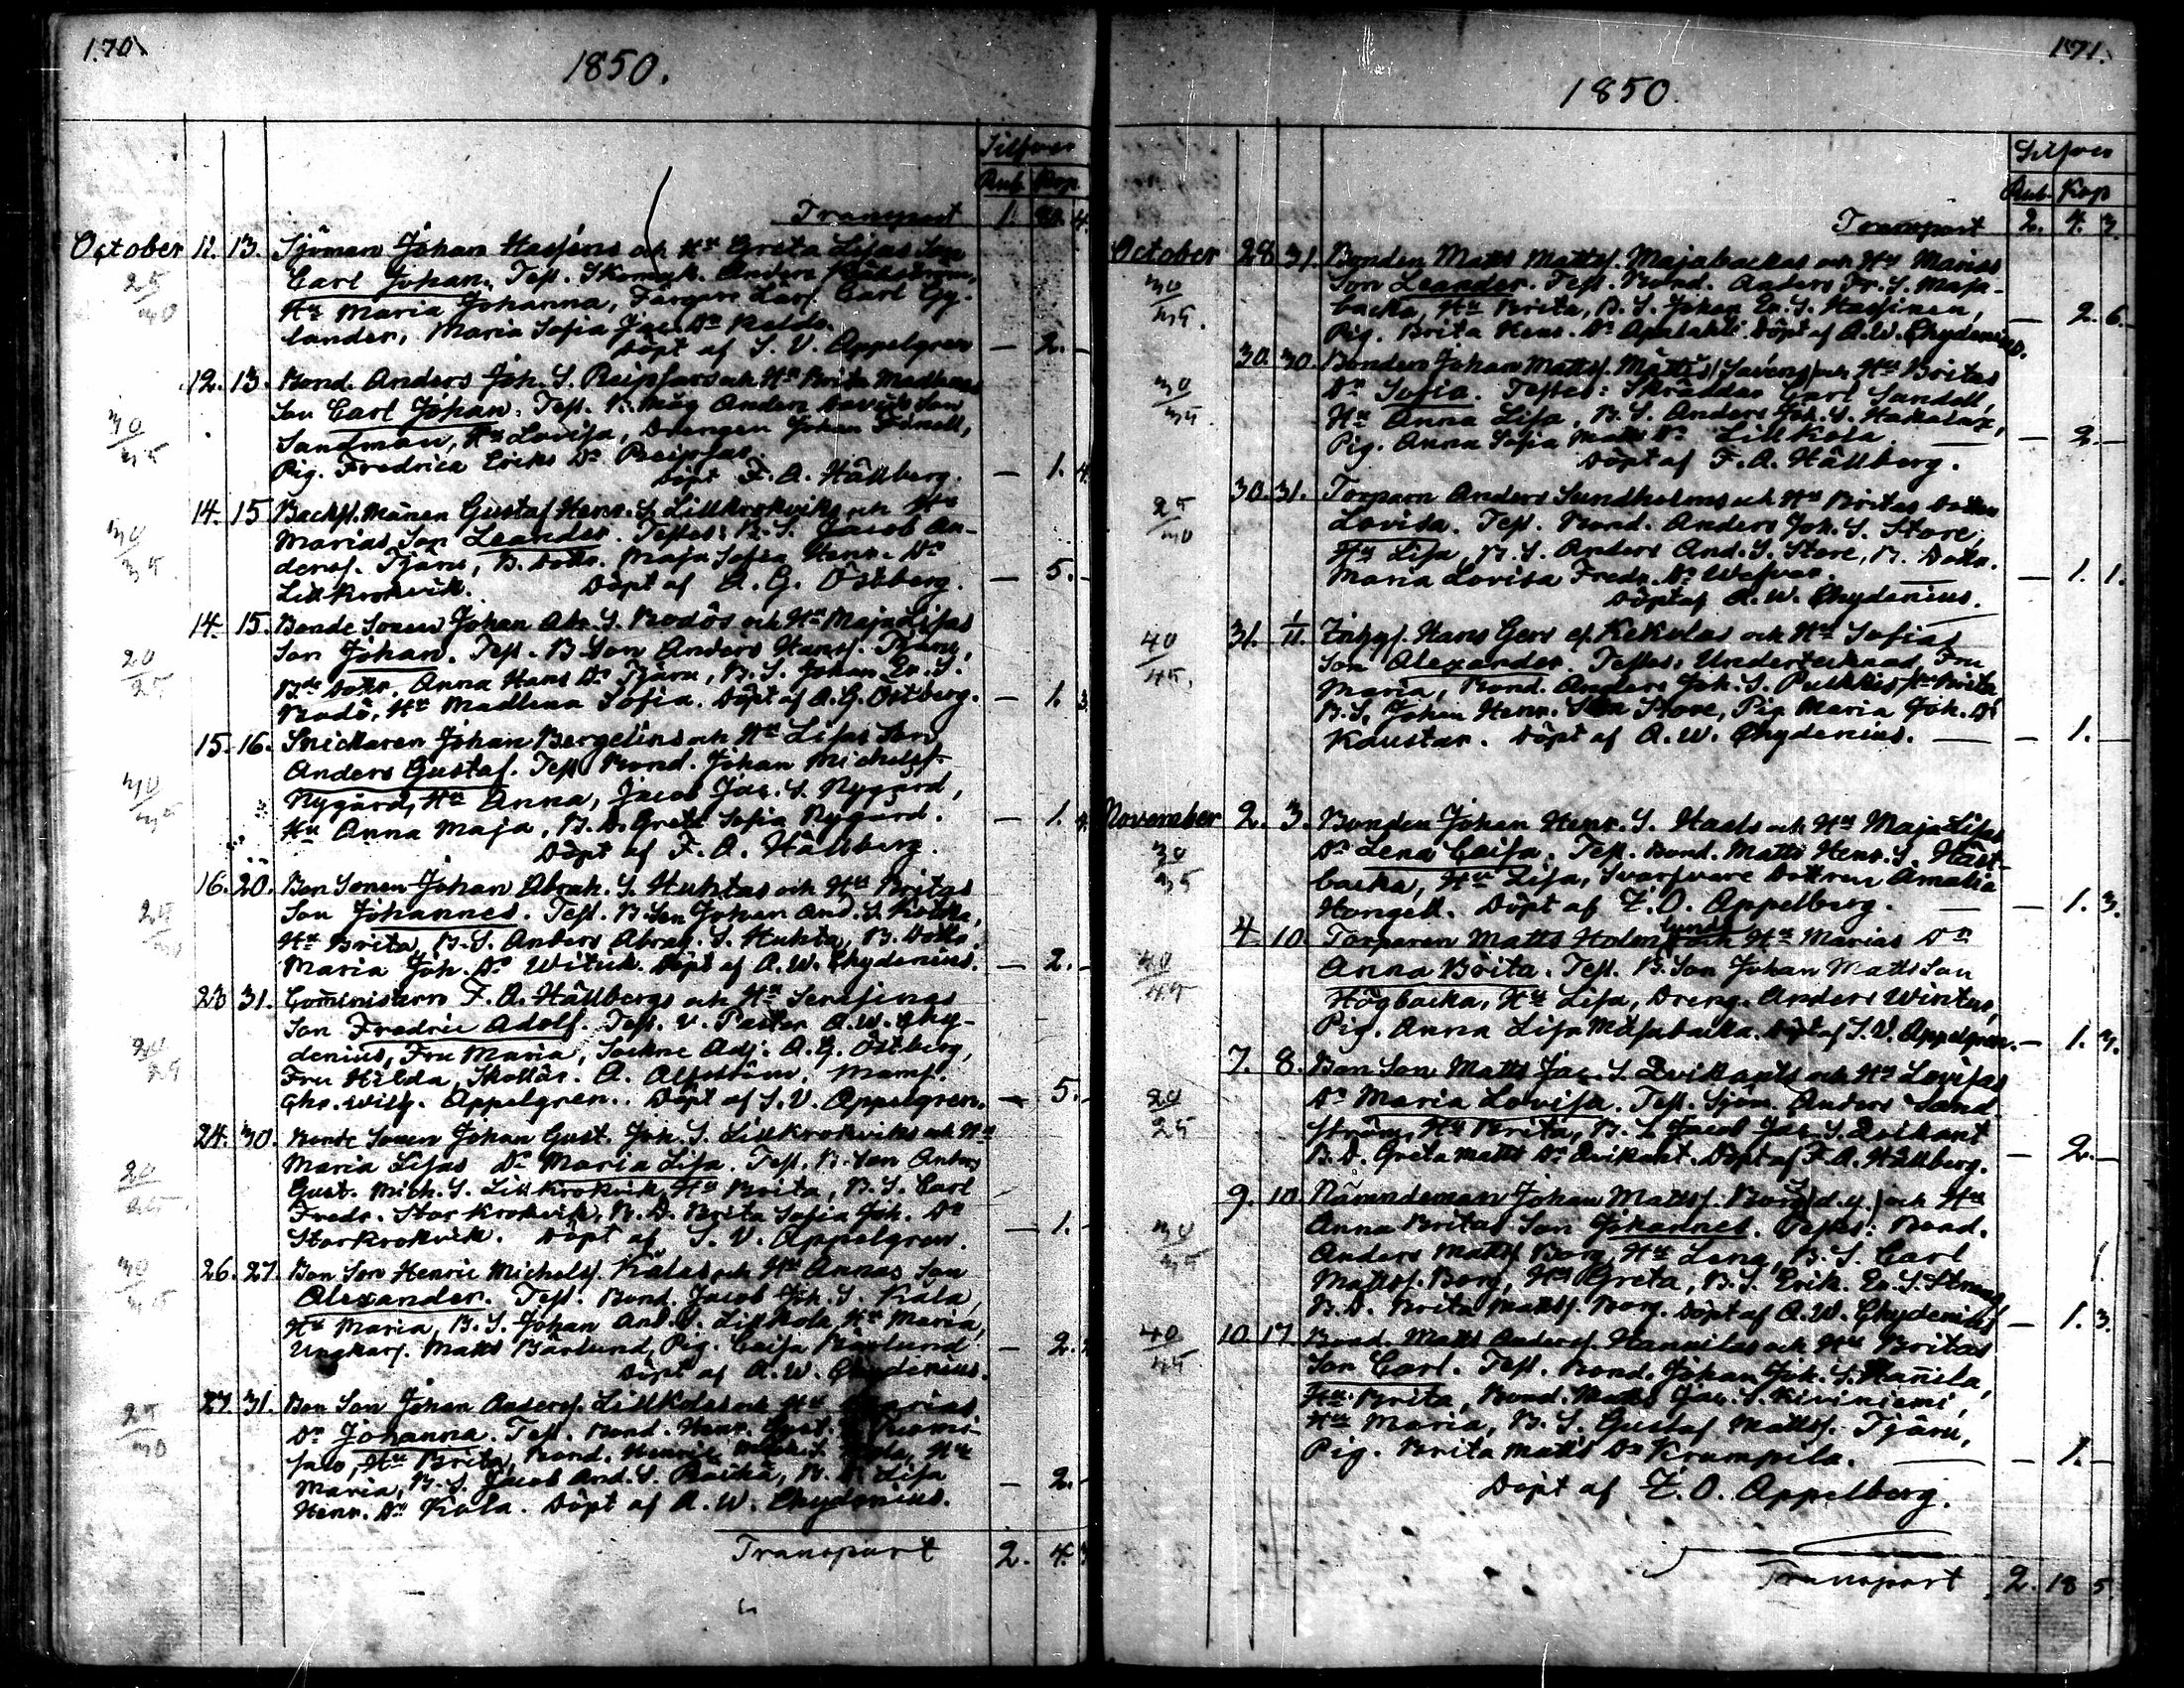 170.
1850.
Silfver
Rub. Kop.
Transport 1. 4.
October 11. 13. Sjöman Johan Hassinens och Hu Greta Lisas Son
25/30 Carl Johan. Test. Skomak. Anders
Hu Maria Johanna, Färgare Lärl. Carl Cy-
lander, Maria Sofia Jac. Dr
Döpt af S. V. Appelgren — 2. —
12. 13. Bond. Anders Joh. S. Reipsars och Hu Brita Madlenas
30/35 Son Carl Johan. Test. B. Måg Anders Davids Son
Sandman, Hu Lovisa, Drengen Johan
Pig. Fredrica Eriks Dr Reipsar.
Döpt F. A. Hällberg. — 1. 4.
14. 15. Backst. Manen Gustaf Henr. S. Lillkrokviks och Hu
30/35. Marias Son Leander. Testes: B. S. Jacob An-
derss. Tjäru, B. Dottr. Maja Sofia Henr. Dr
Lillkrokvik. Döpt af A. G. Östberg. — 5. —
14. 15. Bonde Sonen Johan Abr. S. Bodös och Hu Maja Lisas
20/25 Son Johan. Test. B. Son Anders Hanss. Tjäru,
Bde Dottr. Anna Hans Dr Tjäru, B. S. Johan Er. S.
Bodö, Hu Madlena Sofia. Döpt af A. G. Östberg. — 1. 3.
15. 16. Snickaren Johan Bergelins och Hu Lisas Son
30/35 Anders Gustaf. Test. Bond. Johan Michelss.
Nygård, Hu Anna, Jacob Jac. S. Nygård,
Hu Anna Maja, B. D. Greta Sofia Nygård. — 1.
Döpt af F. A. Hällberg.
16. 20. Bon Sonen Johan Abrah. S. Huhtas och Hu Britas
25/30 Son Johannes. Test. B. Son Johan And. S. Kotka,
Hu Brita, B. S. Anders Abrah. S. Huhta, B. Dottr.
Maria Joh. Dr Witick. Döpt af A. W. Chydenius. — 2. —
23 31. Comministern F. A. Hällbergs och Hu Serafinas
Son Fredric Adolf. Test. V. Pastor A. W. Chy-
denius, Fru Maria, Sockne Adj. A. G. Östberg,
Fru Hilda, Skollär. A. Mams.
Chr. Wilh. Appelgren. Döpt af S. V. Appelgren. — 5. —
24. 30. Bonde Sonen Johan Gust. Joh. S. Lillkrokviks och Hu
20/25 Maria Lisas Dr Maria Lisa. Test. B. Son Anders
Gust. Mich. S. Lillkrokvik, Hu Brita, B. S. Carl
Fredr. Storkrokvik, B. D. Brita Sofia Joh. Dr
Storkrokvik. Döpt af S. V. Appelgren. — 1. —
26. 27. Bon Son Henric Michelss. Kålas och Hu Annas Son
30/35 Alexander. Test. Bond. Jacob Joh. S. Kåla,
Hu Maria, B. S. Johan And. S. Lillkåla, Hu Maria,
Ungkarl. Matts Barlund, Pig. Caisa Barlund — 2.
Döpt af A. W. Chydenius.
27. 31. Bon Son Johan Anderss. Lillkålas och Hu Marias
25/30 Dr Johanna. Test. Bond. Henr. Gust.
salo, Hu Brita, Bond. Henric Mich. S. Kåla, Hu
Maria, B. S. Jacob And. S. B. D. Lisa — 2. —
Henr. Dr Kåla. Döpt af A. W. Chydenius.
Transport 2. 4. 3
171.
1850.
Silfver
Rub. Kop
Transport 2. 4. 3.
October 28 31. Bonden Matts Mattss. Majabackas och Hu Marias
30/35. Son Leander. Test. Bond. Anders Fr. S. Maja-
backa, Hu Brita, B. S. Johan Er. S. Hassinen, — 2. 6.
Pig. Brita Henr. Dr Döpt af A. W. Chydenius.
30. 30. Bonden Johan Mattss. Matts (Savons) och Hu Britas
30/35 Dr Sofia. Testes: Skräddar Carl Sandell,
Hu Anna Lisa, B. S. Anders Joh. S. Hakalax,
Pig. Anna Sofia Matts Dr Lillkåla. — 2. —
Döpt af F. A. Hällberg.
30. 31. Torparn Anders Sundholms och Hu Britas Dotter
25/30 Lovisa. Test. Bond. Anders Joh. S. Store,
Hu Lisa, B. S. Anders And. S. Store, B. Dottr.
Maria Lovisa Fredr. Dr Wefvar. — 1. 1.
Döpt af A. W. Chydenius.
31. 1/11. Inhys. Hans Gers af Kekolas och Hu Sofias
40/45. Son Alexander. Testes: Undertecknad, Fru
Maria, Bond. Anders Joh. S. Pulkkis, Hu Brita,
B. S. Johan Henr. Son Store, Pig. Maria Joh. Dr
Kaustar. Döpt af A. W. Chydenius. — 1. —
November 2. 3. Bonden Johan Henr. S. Haals och Hu Maja Lisas
30/35 Dr Lena Caisa. Test. Bond. Matts Henr. S. Häst-
backa, Hu Lisa, Svarfvare Dottren Amalia
Hongell. Döpt af Z. O. Appelberg. — 1. 3.
4 10. Torparen Matts Holmlunds och Hu Marias Dr
40/45 Anna Brita. Test. B. Son Johan Matts Son
Högbacka, Hu Lisa, Dreng. Anders Wintus,
Pig. Anna Lisa Majabacka. Döpt af S. V. Appelgren. — 1.
7. 8. Bon Son Matts Jac. S. Qvikants och Hu Lovisas
20/25 Dr Maria Lovisa. Test. Sjöm. Anders Sand-
ström, Hu Brita, B. S. Jacob Jac. S. Qvikant
B. D. Greta Matts Dr Qvikant. Döpt af F. A. Hällberg. — 2. —
9. 10 Nämndeman Johan Mattss. Borg (d. y.) och Hu
30/35 Anna Britas Son Johannes. Testes: Bond.
Anders Mattss. Borg, Hu Lena, B. S. Carl
Mattss. Borg, Hu Greta, B. S. Erik Er. S. Strang
B. D. Brita Mattss. Borg. Döpt af A. W. Chydenius — 1. 3.
10 17 Bond. Matts Anderss. Hannilas och Hu Britas
40/45 Son Carl. Test. Bond. Johan Joh. S. Hanila,
Hu Brita, Bond. Matts Jac. S. Kiviniemi,
Hu Maria, B. S. Gustaf Mattss. Tjäru,
Pig. Brita Matts Dr Krumpila. — 1. —
Döpt af Z. O. Appelberg.
Transport 2. 18 5